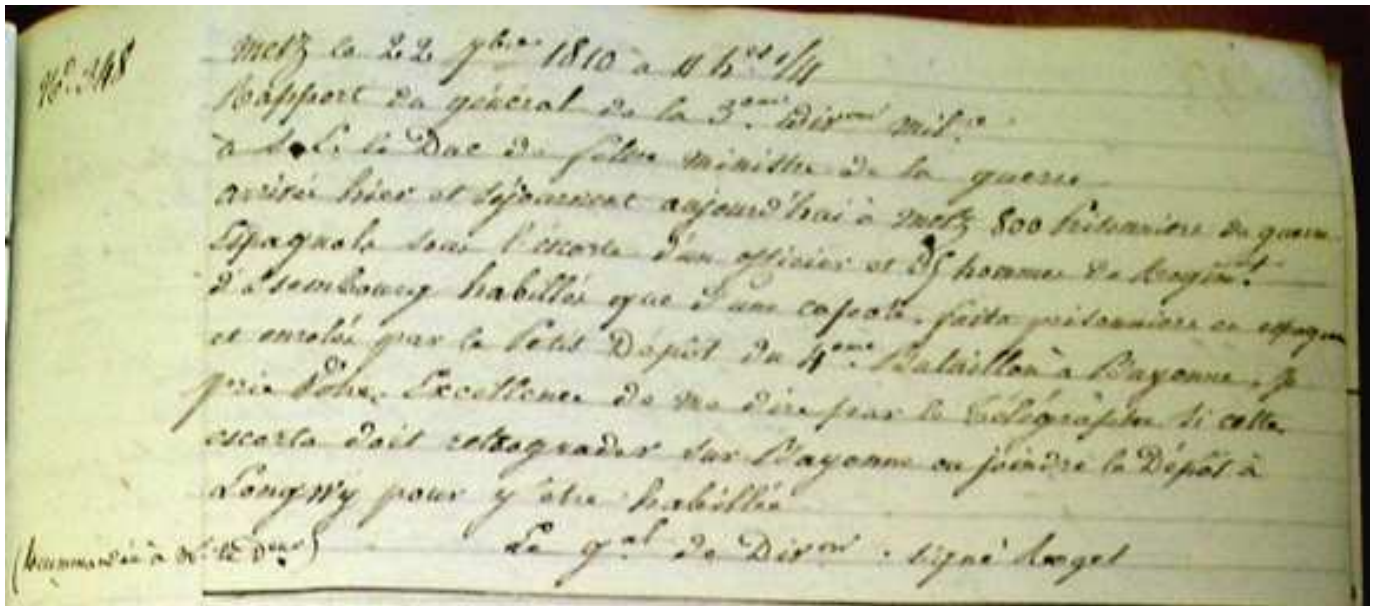 N.o 248
Metz le 22 9bre 1810 à 11 h.es 1/4
Rapport du général de la 3.eme Divon mil.re
à S. E. le Duc de feltre ministre de la guerre
arrivée hier et séjournent aujourd'hui à metz 800 Prisonniers de guerre
Espagnols sous l'escorte d'un officier et 25 hommes du Regimt
d'Isembourg habillés que d'une capote, faits prisonniers en espagne
et enrolés par le Petit Dépôt du 4.eme Bataillon à Bayonne, je
prie Votre Excellence de me dire par le Télégraphe si cette
escorte doit retrograder sur Bayonne ou joindre le Dépôt à
Longwy pour y être habillée
Le gal de Divon signé Roget
(à Mr le Deur)